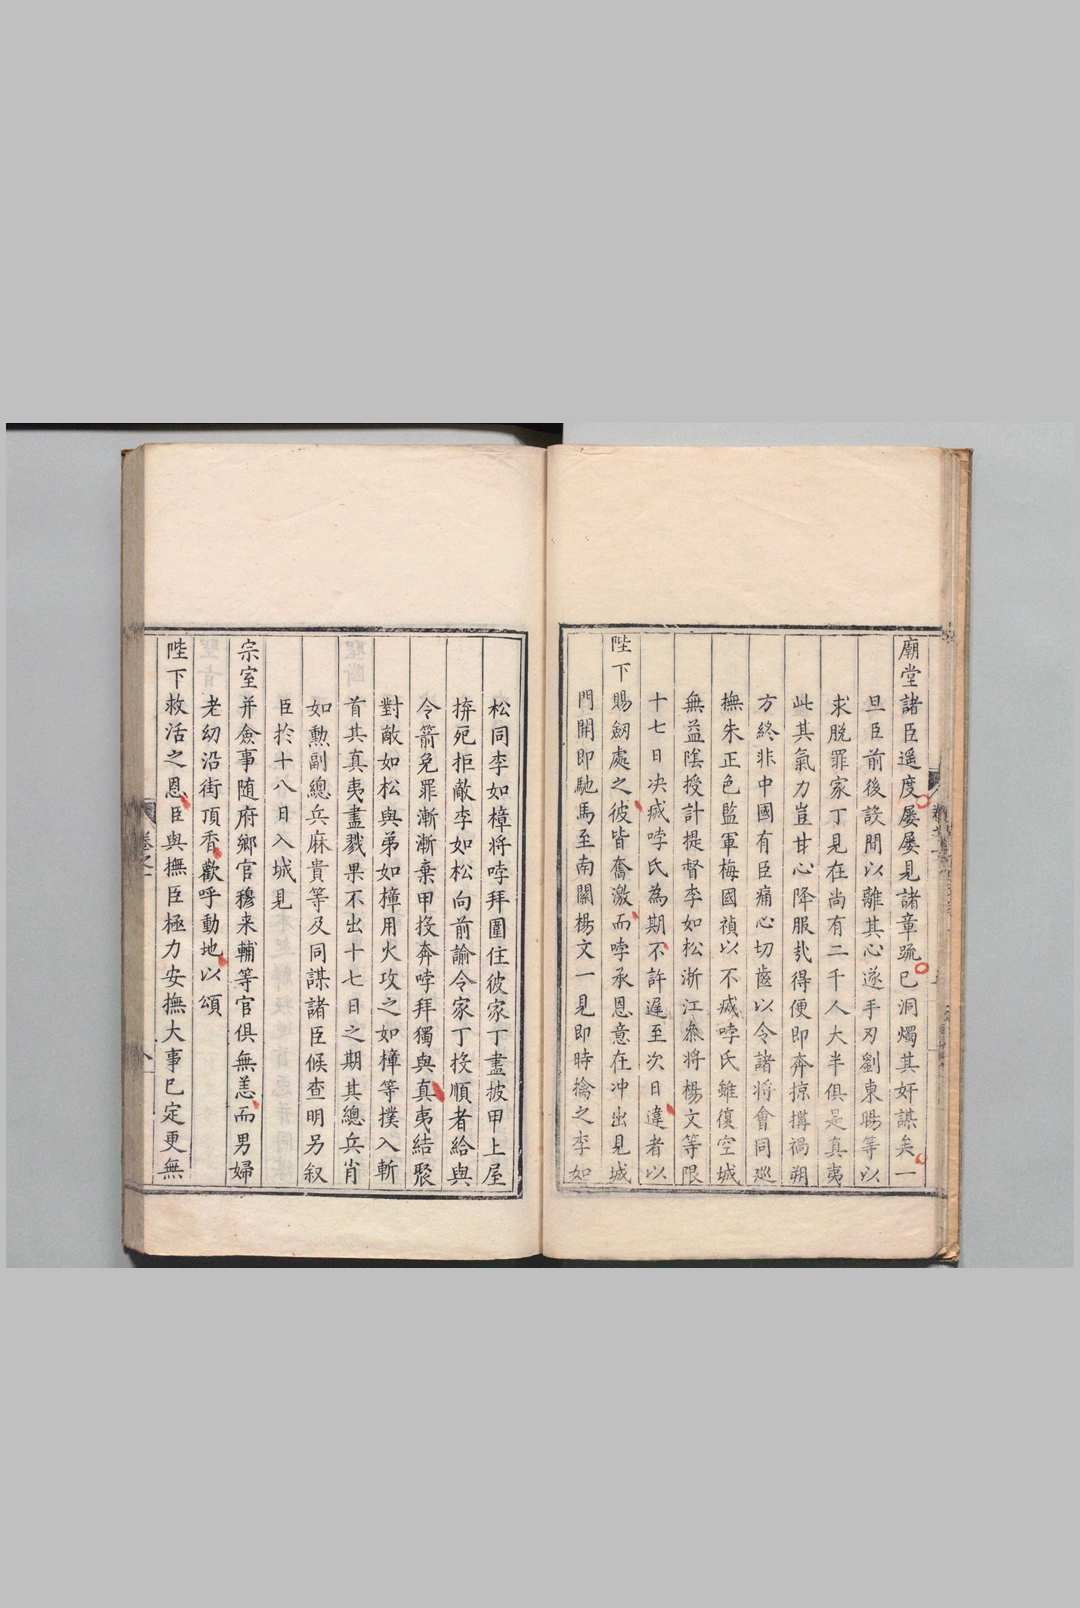 廟堂諸臣遥度屡屡見諸章疏已洞燭其奸謀矣一
旦臣前後設間以離其心遂手刃劉東暘等以
求脱罪家丁見在尚有二千人大半俱是真夷
此其氣力豈甘心降服㦲得便即奔掠搆禍朔
方終非中國有臣痛心切齒以令諸將會同廵
撫朱正色監軍梅國禎以不㓕哱氏雖復空城
無益隂授計提督李如松浙江叅將楊文等限
十七日决㓕哱氏為期不許遲至次日違者以
陛下賜劒處之彼皆奮激而哱承恩意在冲出見城
門開即馳馬至南關楊文一見即時擒之李如
松同李如樟將哱拜圍住彼家丁盡披甲上屋
拚死拒敵李如松向前諭令家丁投順者給與
令箭免罪漸漸棄甲投奔哱拜獨與真夷結聚
對敵如松與弟如樟用火攻之如樟等撲入斬
首其真夷盡戮果不出十七日之期其總兵肖
如勲副總兵麻貴等及同謀諸臣候查明另叙
臣於十八日入城見
宗室并僉事随府鄉官穆來輔等官俱無恙而男婦
老幼沿街頂香歡呼動地以頌
陛下救活之恩臣與撫臣極力安撫大事已定更無
卷之